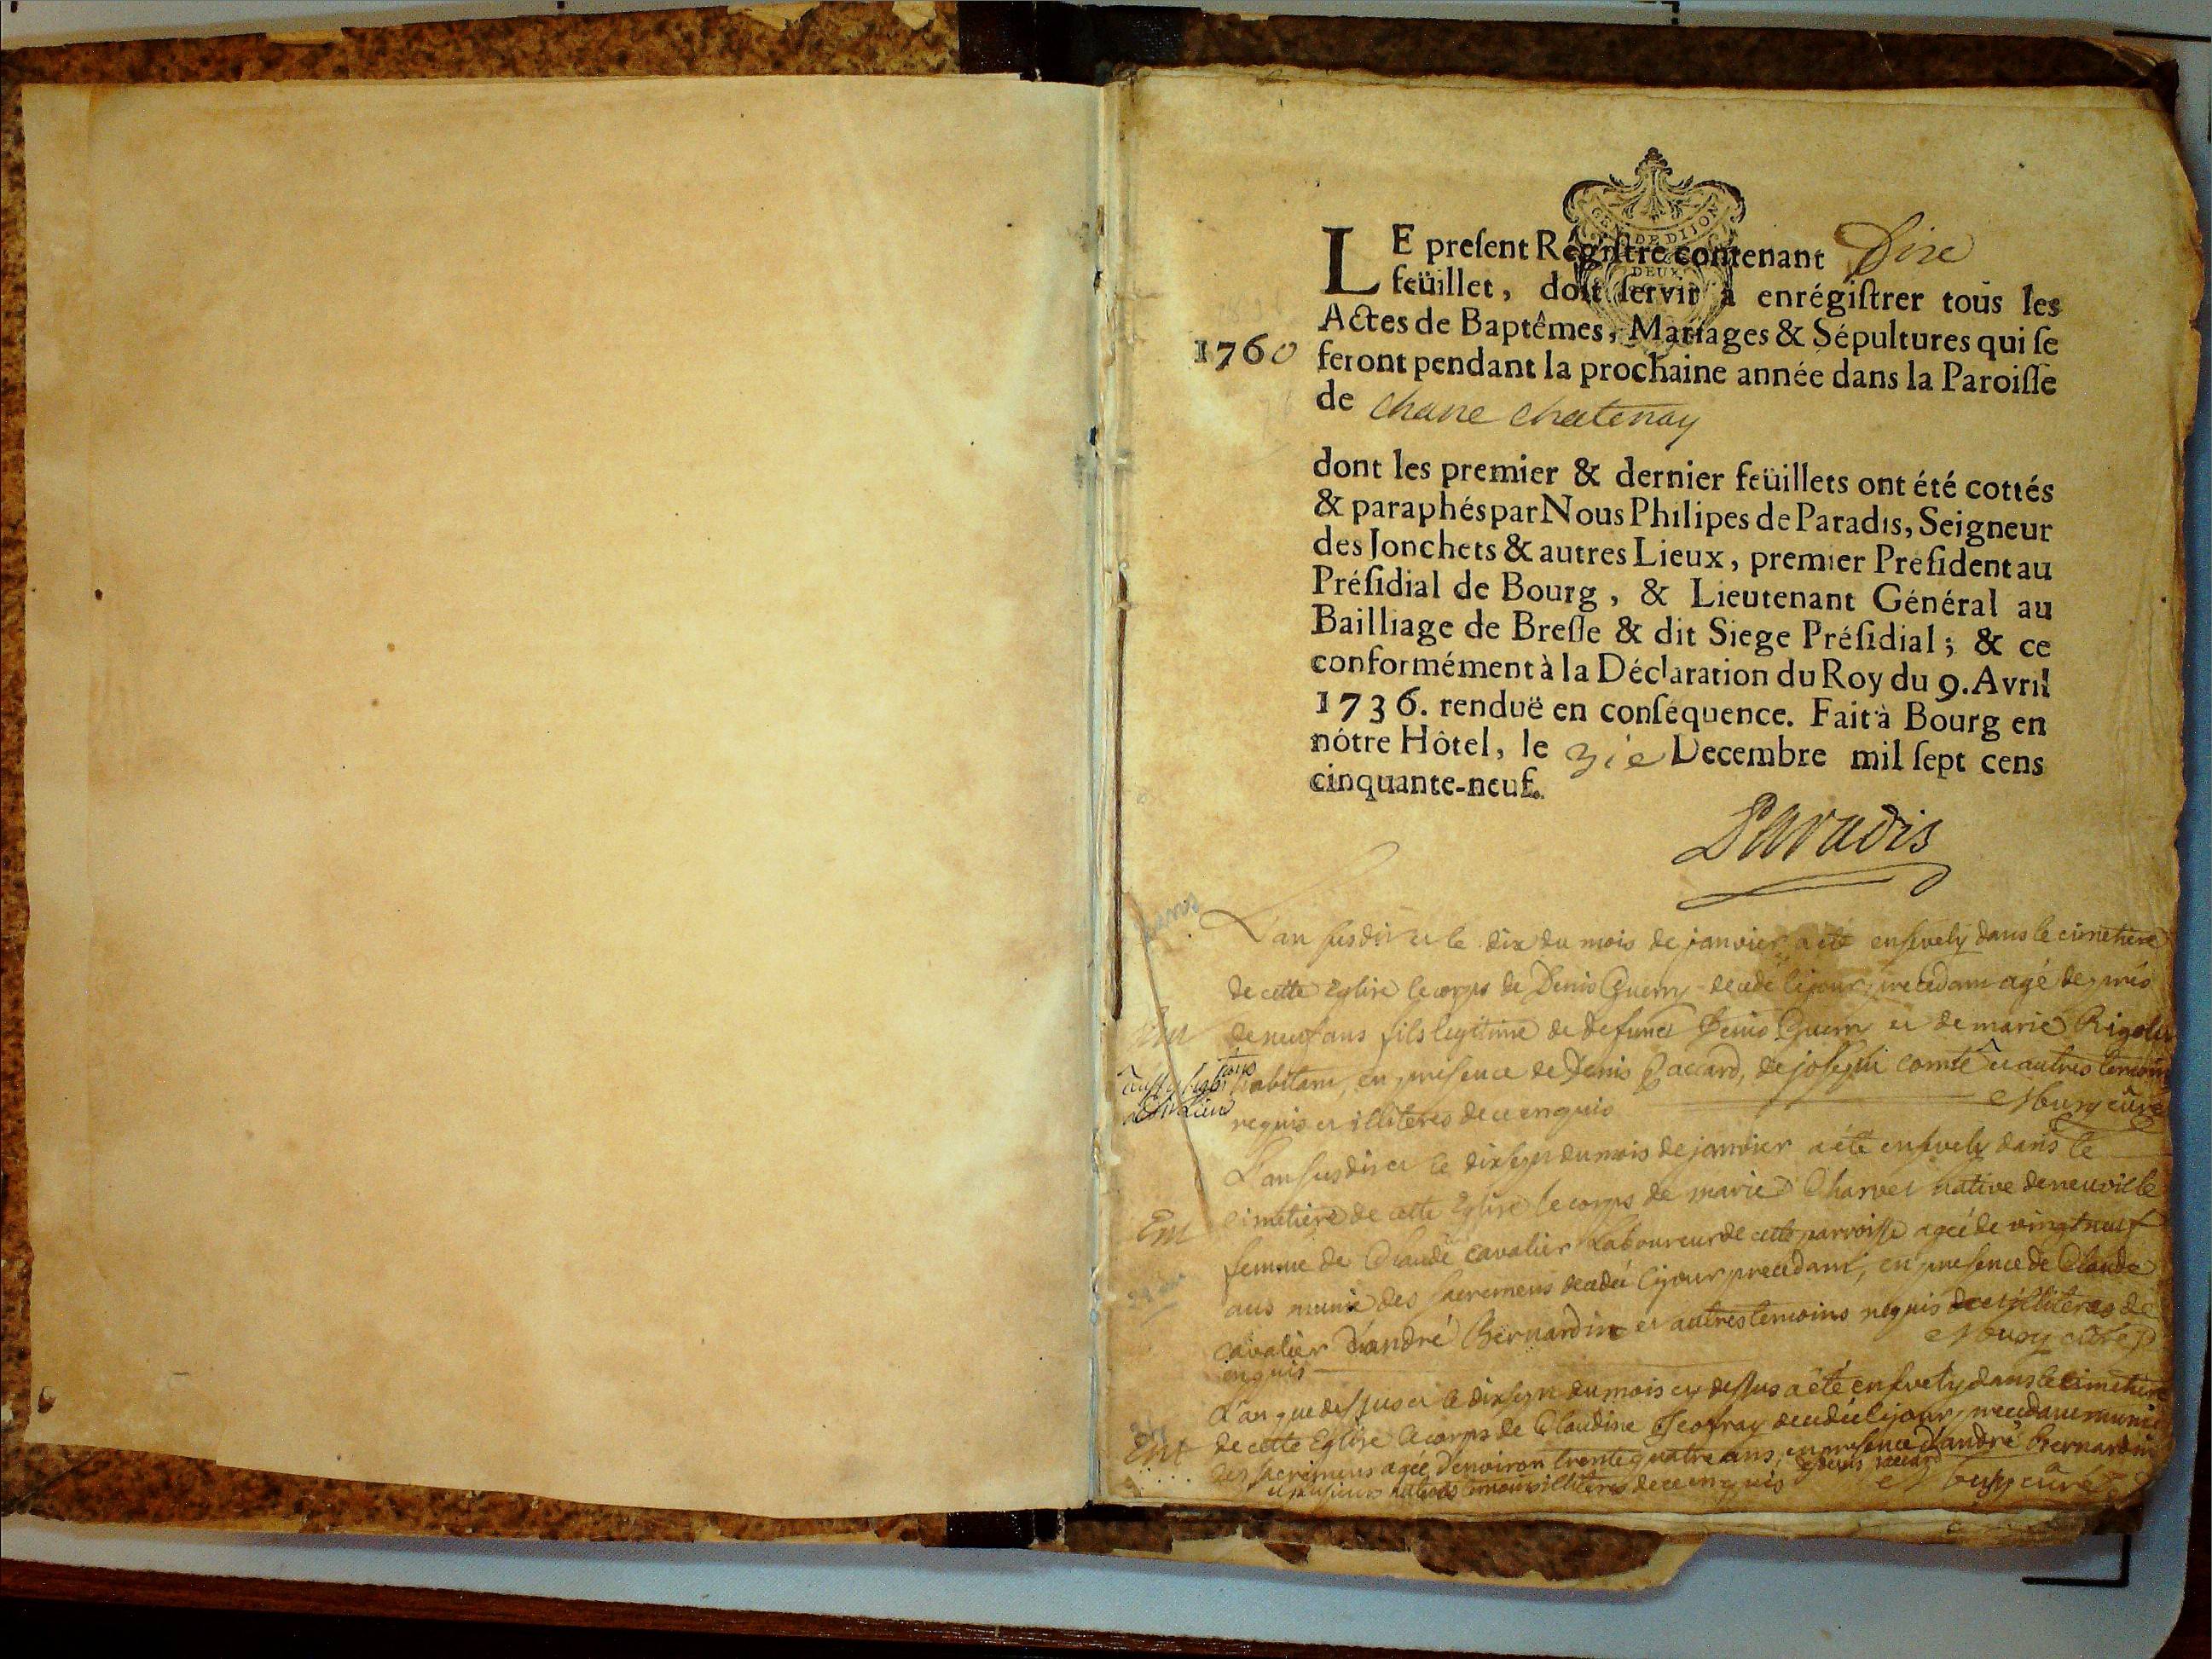 GEN. DE DIJON
DEUX
LE preſent Régiſtre contenant Dix
feüillet, doit ſervir à enrégiſtrer tous les
Actes de Baptêmes, Mariages & Sépultures qui ſe
1760 feront pendant la prochaine année dans la Paroiſſe
de chane chatenay
dont les premier & dernier feüillets ont été cottés
& paraphés par Nous Philipes de Paradis, Seigneur
des Jonchets & autres Lieux, premier Préſident au
Préſidial de Bourg, & Lieutenant Général au
Bailliage de Breſſe & dit Siege Préſidial; & ce
conformément à la Déclaration du Roy du 9. Avril
1736. renduë en conſéquence. Fait à Bourg en
nótre Hôtel, le 31e Decembre mil ſept cens
cinquante-neuf.
Paradis
L'an susdit et le dix du mois de janvier a été ensevely dans le cimetiere
de cette Eglise le corps de Denis Guerry decedé le jour precedant agé de près
de neuf ans fils legitime de defunct Denis Guerry et de marie Rigolet
habitans, en presence de Denis Paccard, de joseph comte et autres temoins
requis et illiteres de ce enquis
Mburry curé
L'an susdit et le dixsept du mois de janvier a été ensevely dans le
Ent cimetiere de cette Eglise le corps de marie Charvet native de neuville
femme de Claude cavalier Laboureur de cette parroisse agée de vingt neuf
ans munie des sacremens decedée le jour precedant, en presence de Claude
cavalier d'andré Bernardin et autres temoins requis illiteres de
enquis
curé
L'an que dessus et le dixsept du mois cy dessus a été ensevely dans le cimetiere
Ent de cette Eglise le corps de Claudine Geofray decedée le jour precedant munie
des sacremens agée d'environ trente quatre ans, en presence d'andré Bernardin
et plusieurs autres temoins illiteres de ce enquis
curé